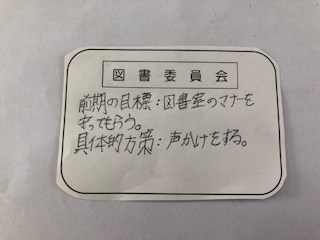 図書委員会
前期の目標：図書室のマナーを
守ってもらう。
具体的方策：声かけをする。